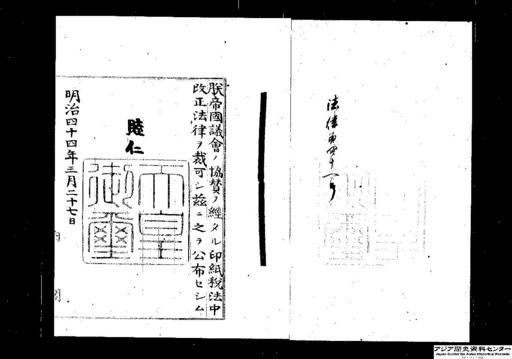 法律第四十一号
朕帝國議會ノ協賛ヲ經タル印紙稅法中
改正法律ヲ裁可シ茲ニ之ヲ公布セシム
睦仁
天皇
御璽
明治四十四年三月二十七日
アジア歴史資料センター
Japan Center for Asian Historical Records